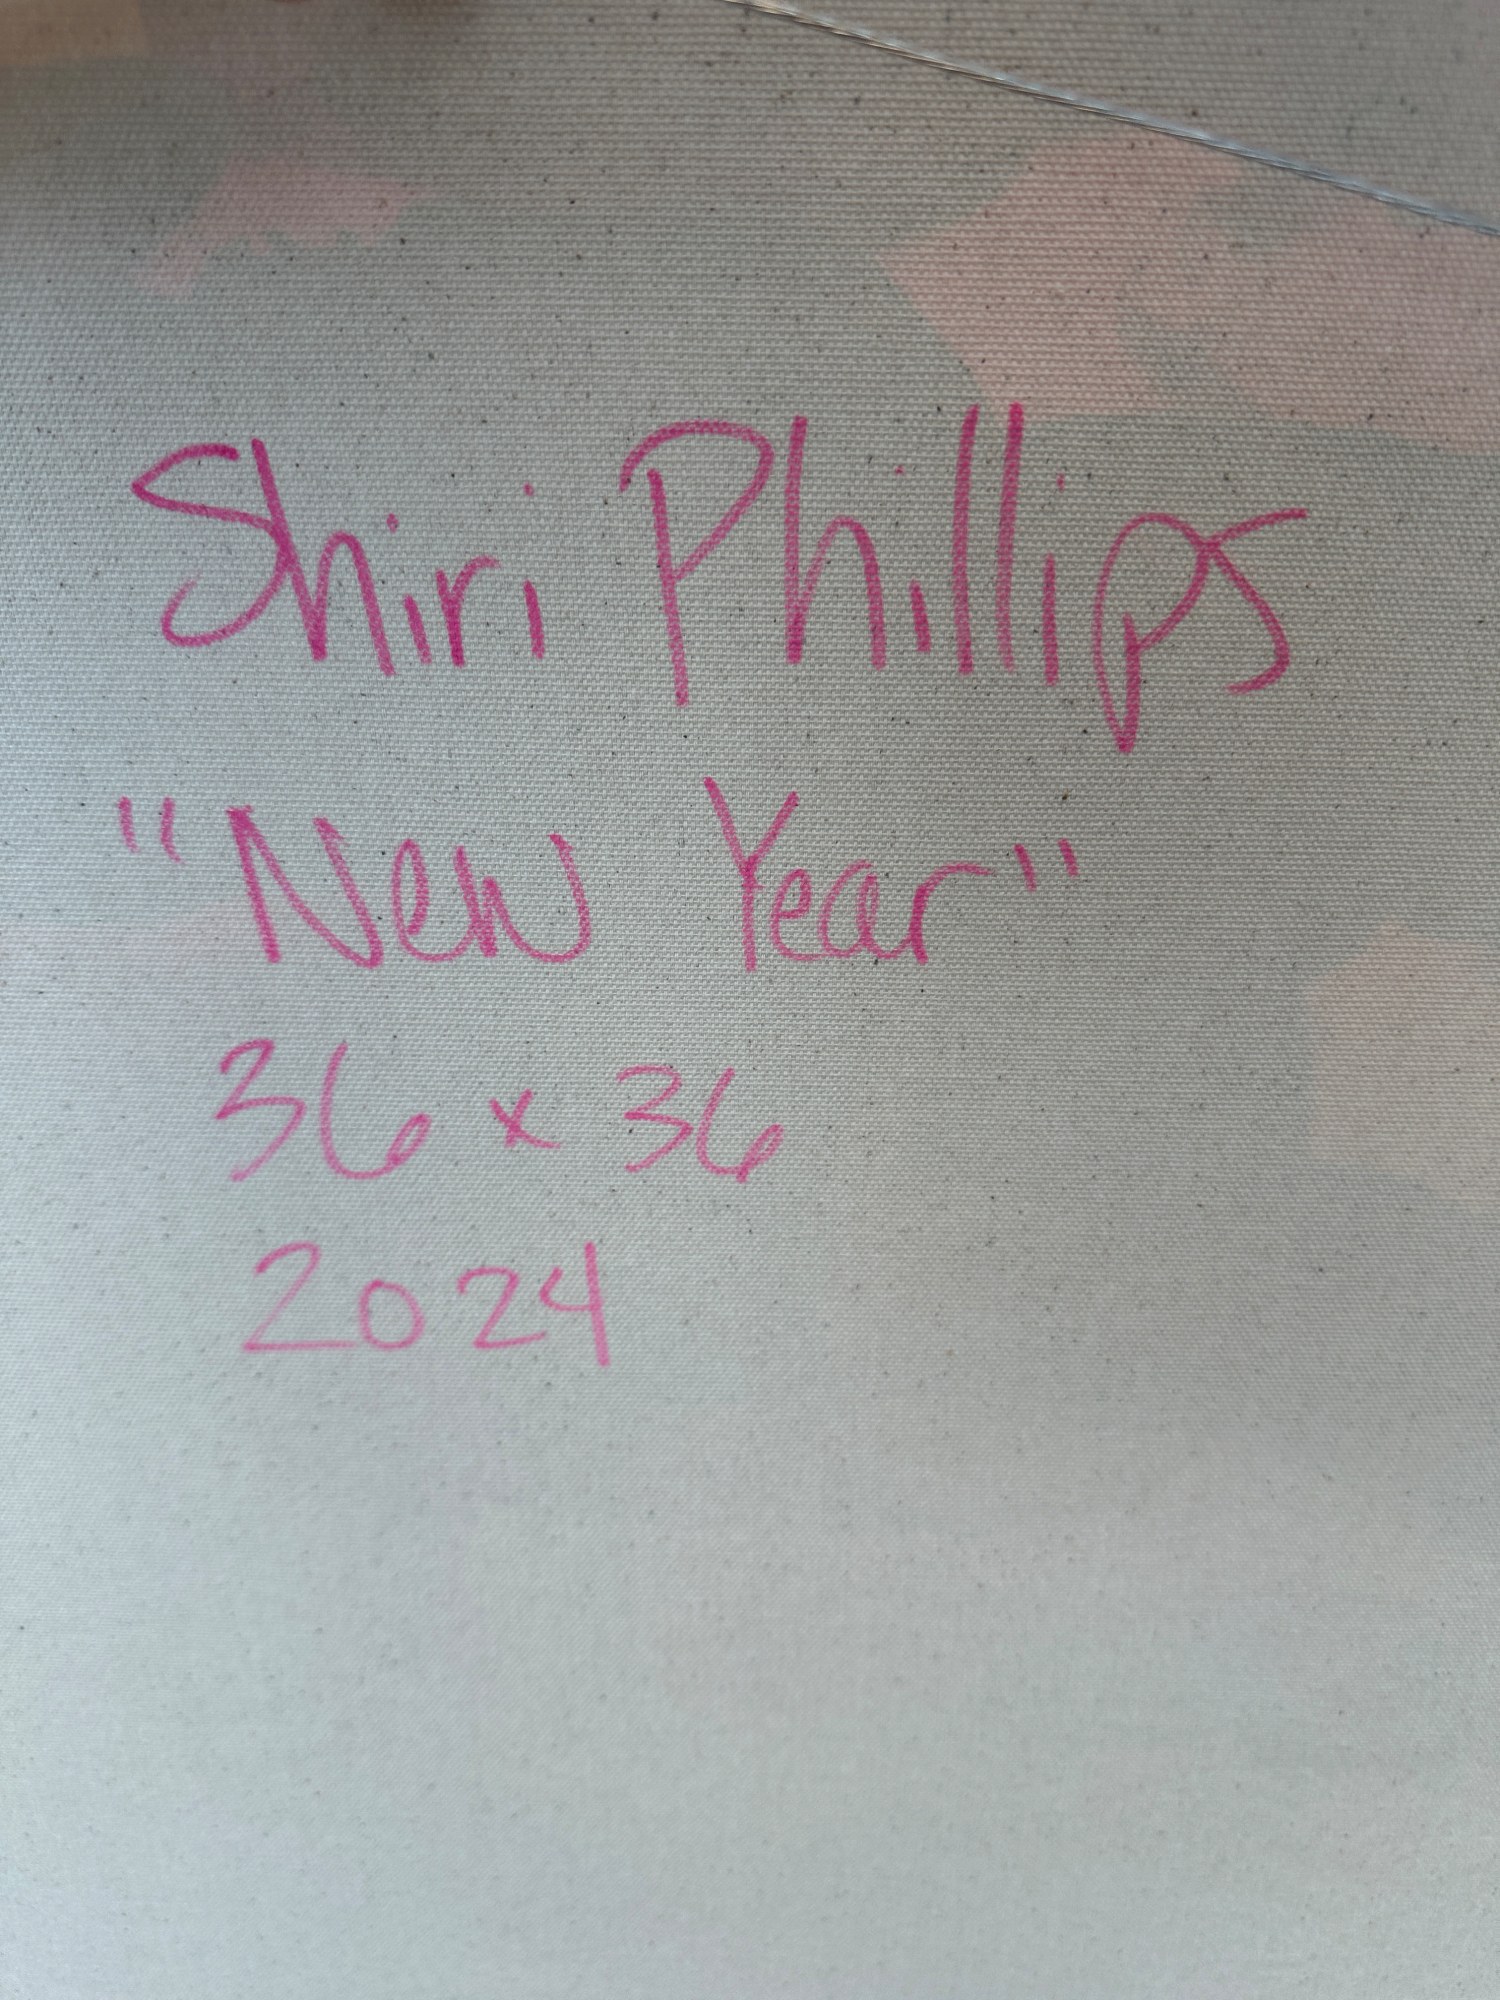 Shiri Phillips
"New Year"
36 x 36
2024